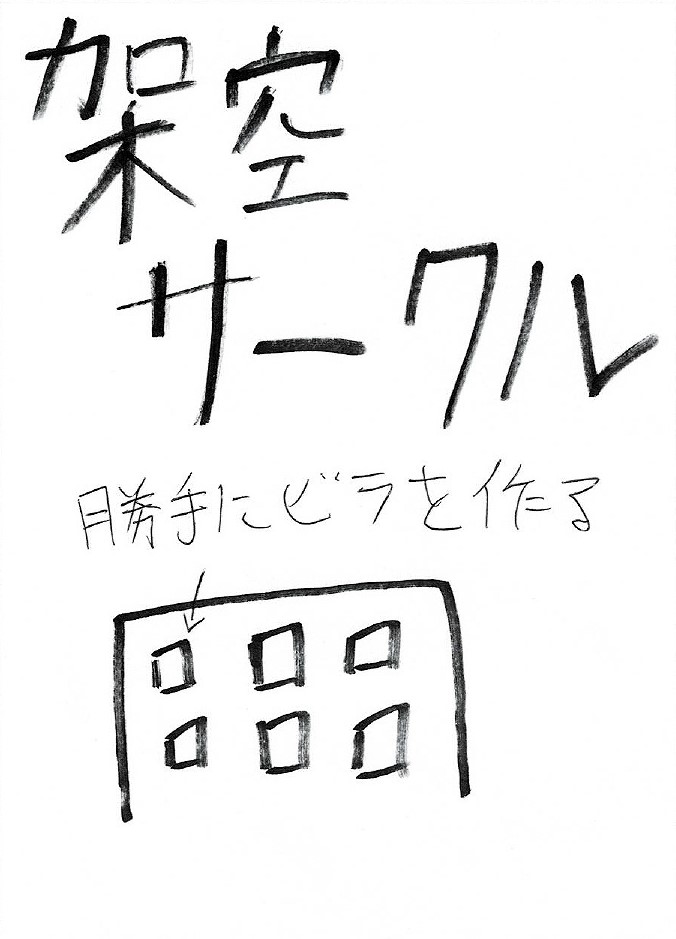 架空
サークル
勝手にビラを作る